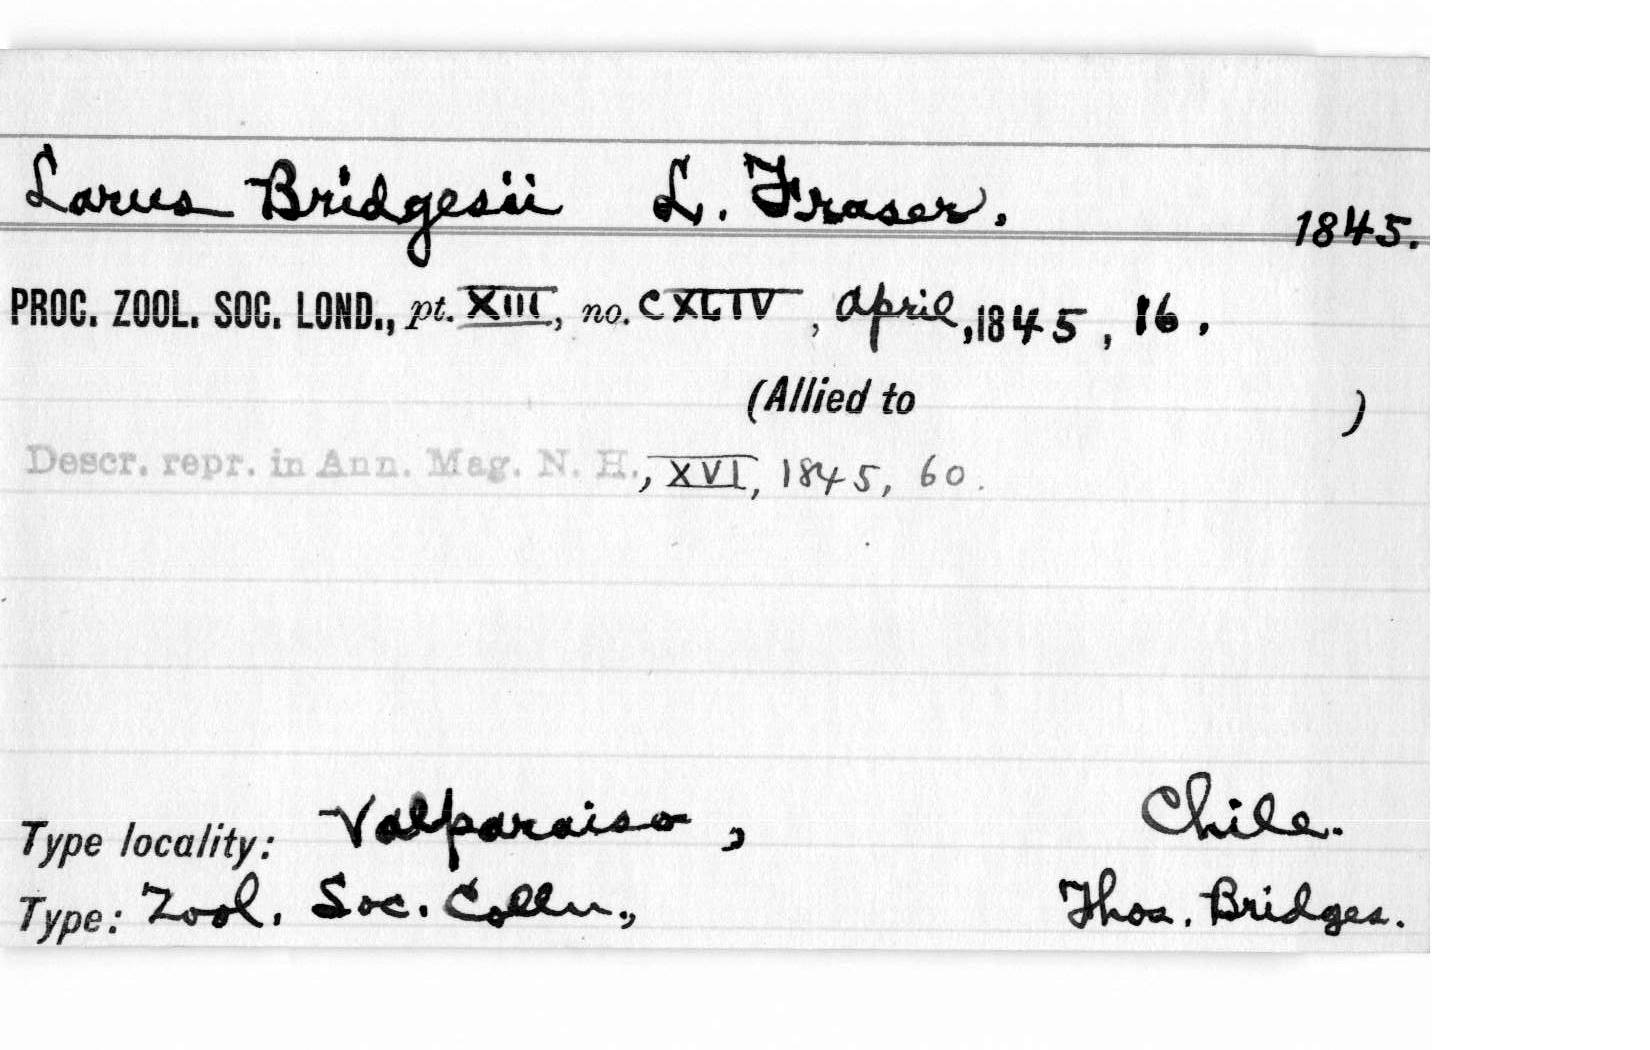 Larus Bridgesii L. Fraser. 1845.
PROC. ZOOL. SOC. LOND., pt. XIII, no. CXLIV, April, 1845, 16.
(Allied to )
Descr. repr. in Ann. Mag. N. H., XVI, 1845, 60.
Type locality: Valparaiso, Chile.
Type: Zool. Soc. Colln., Thos. Bridges.